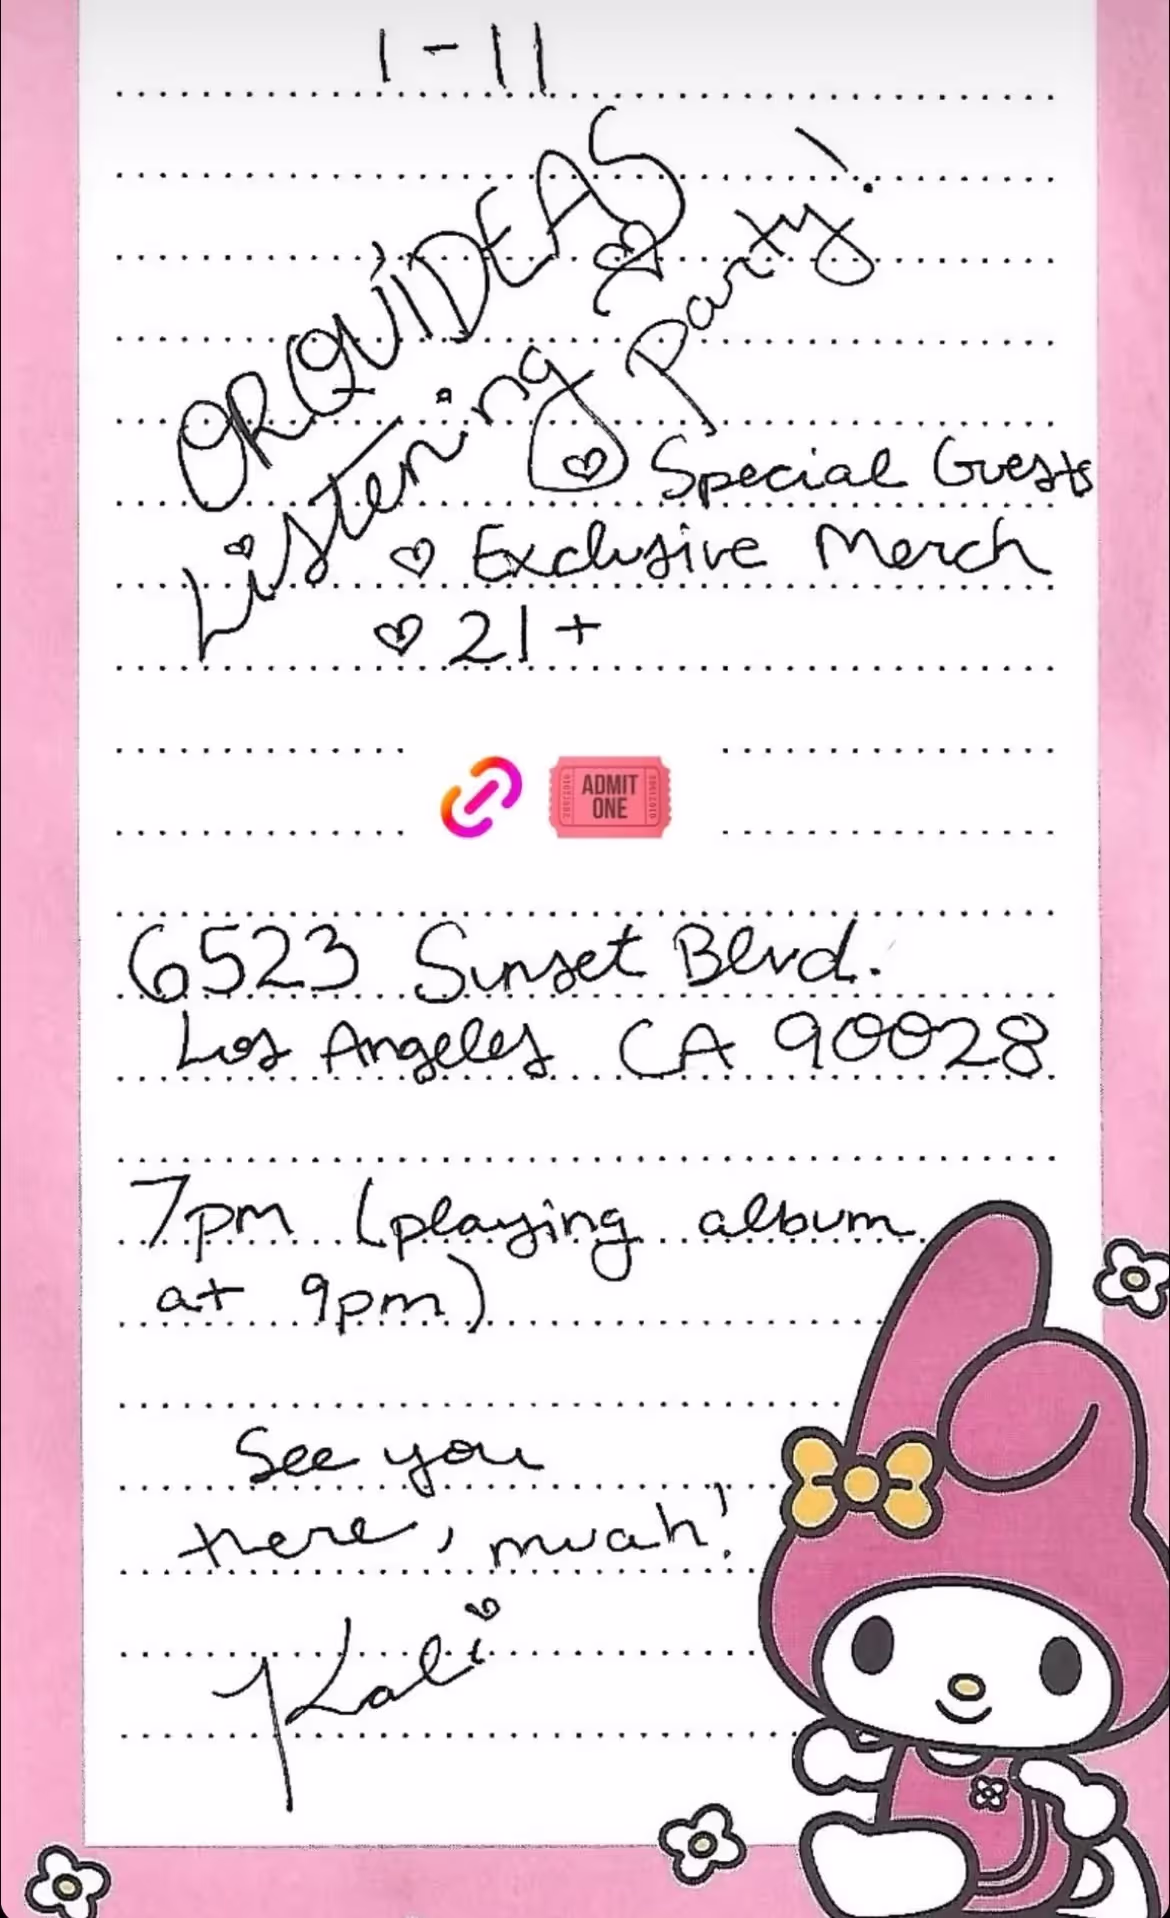 1-11
ORQUÍDEAS
Listening Party!
♡ Special Guests
♡ Exclusive Merch
♡ 21+
ADMIT
ONE
6523 Sunset Blvd.
Los Angeles CA 90028
7pm (playing album
at 9pm)
See you
there, muah!
Kali